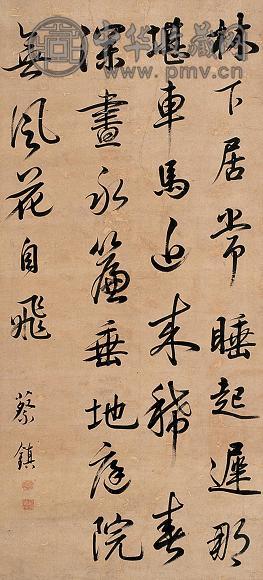 林下居常睡起遲那
堪車馬近來稀春
深晝永簾垂地庭院
無風花自飛
蔡鎮
中华典藏网
www.pmv.cn